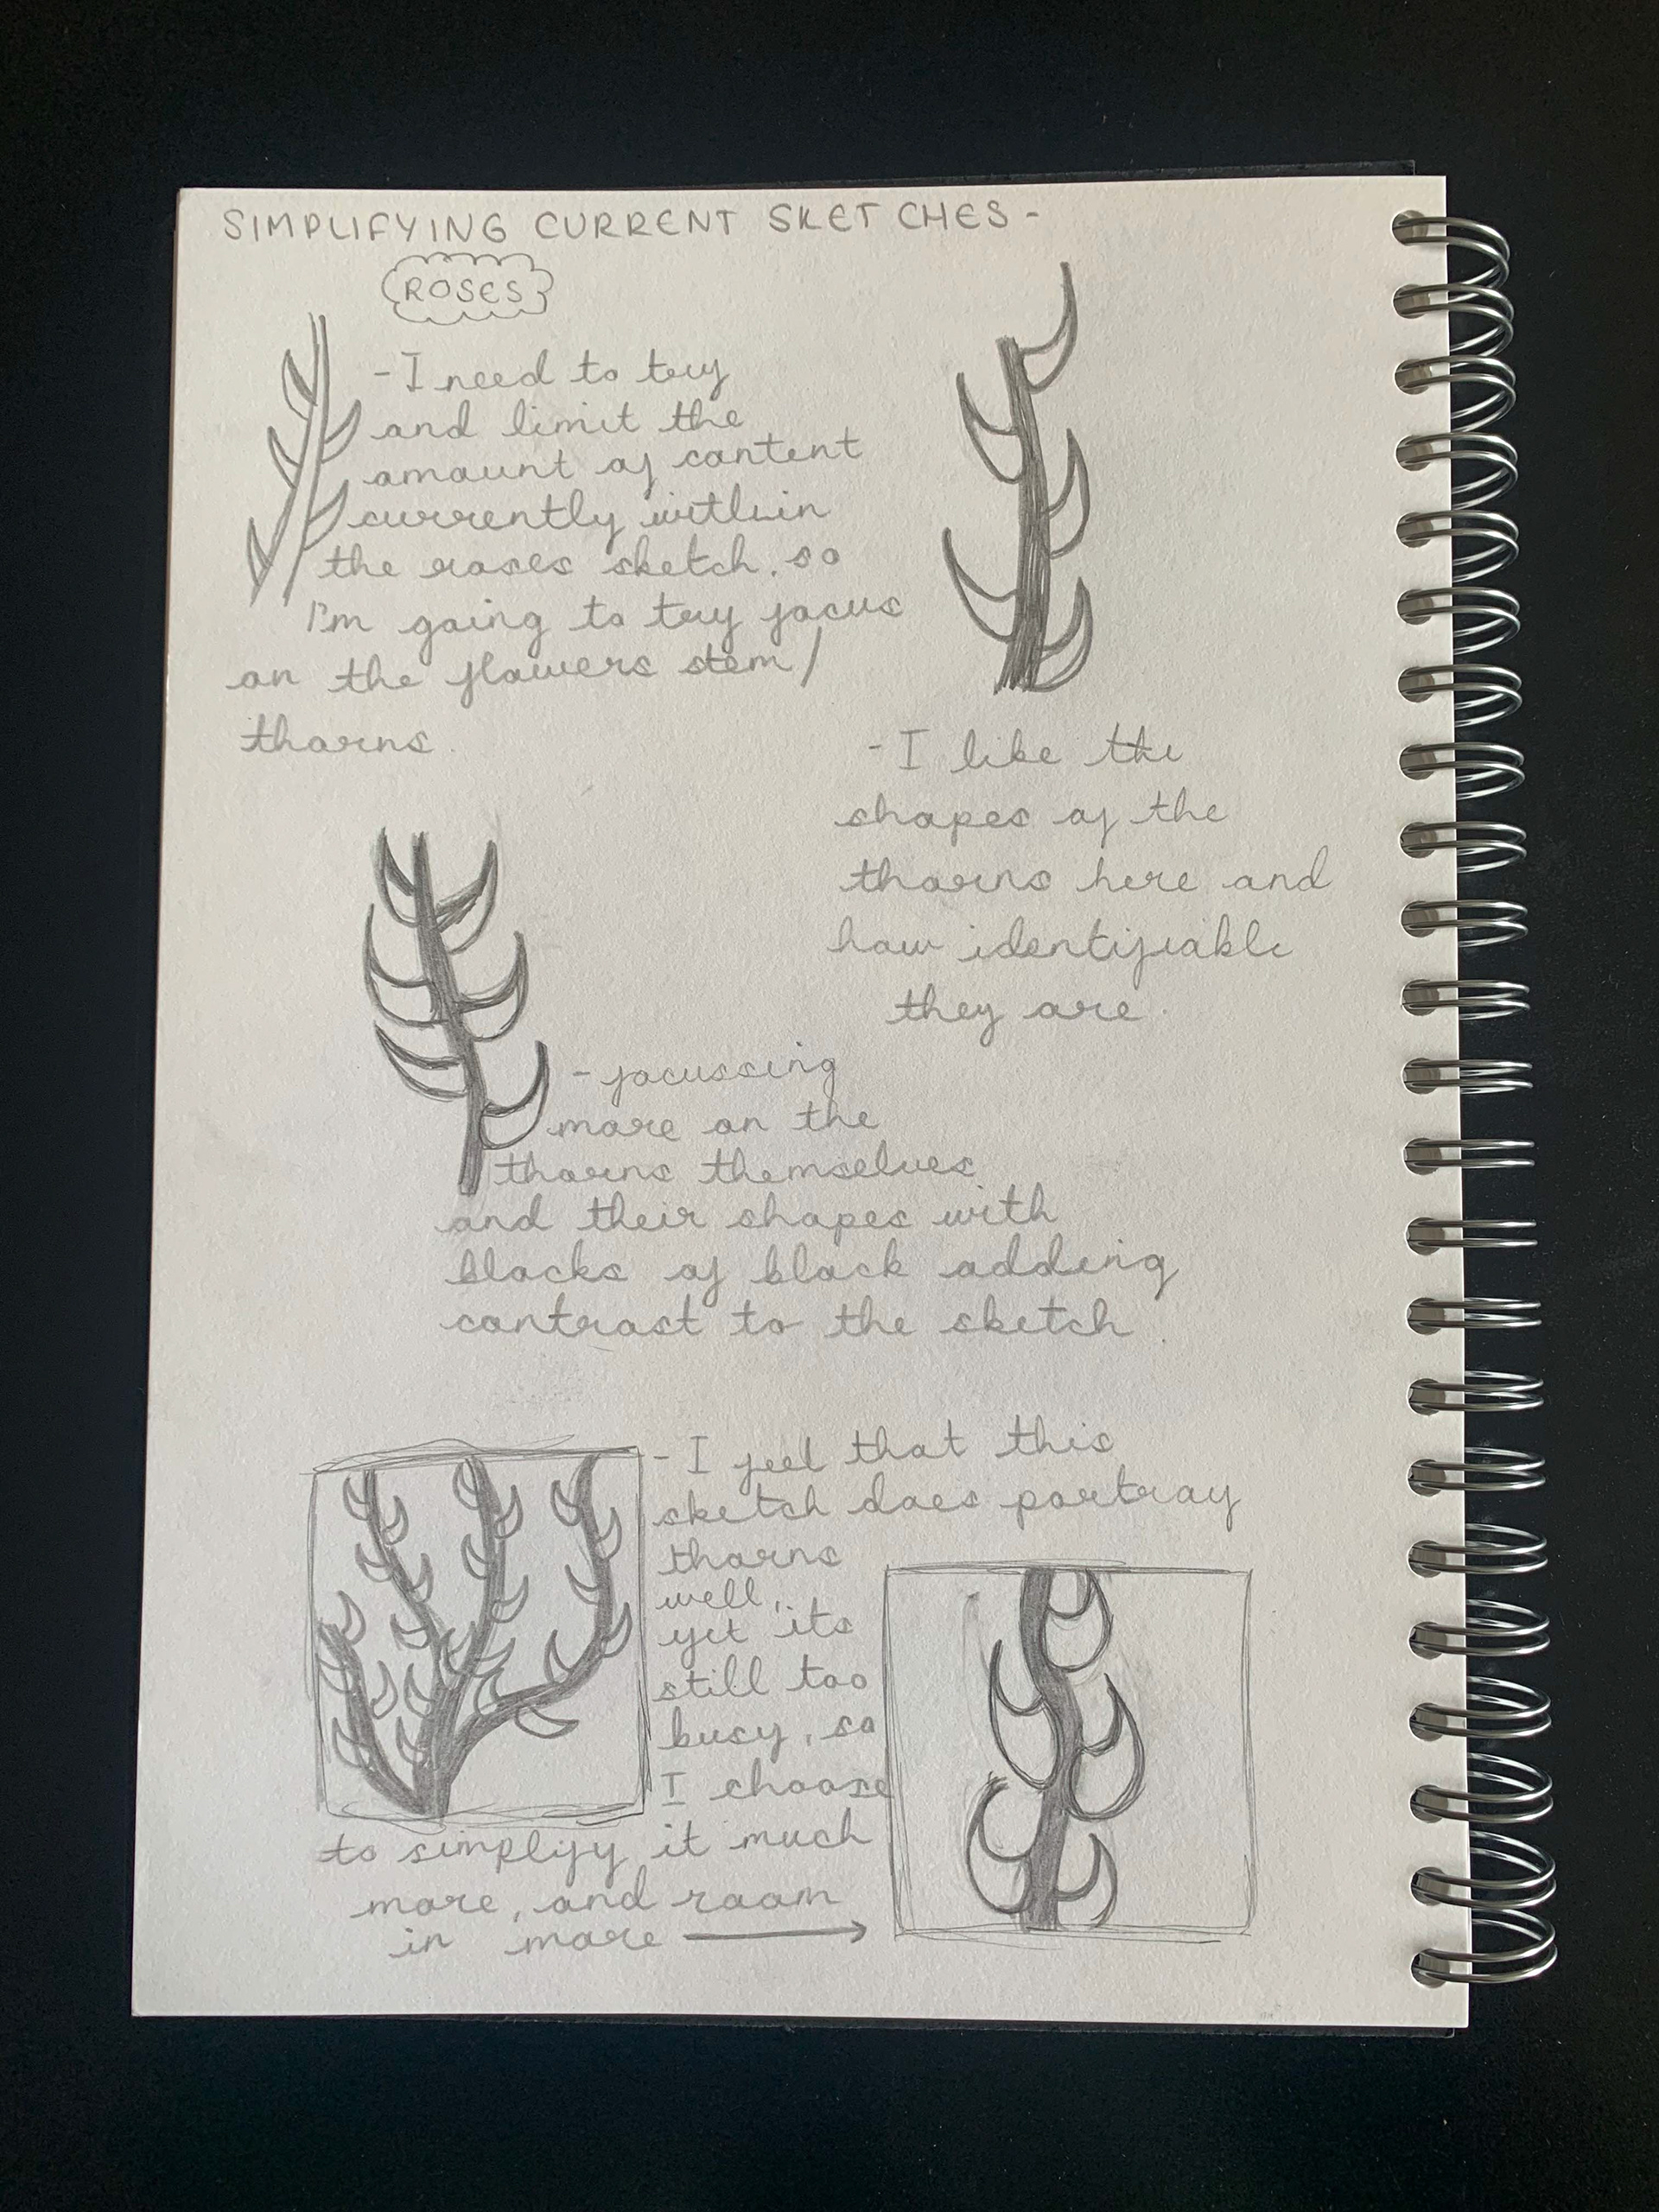 SIMPLIFYING CURRENT SKETCHES -
ROSES
- I need to try
and limit the
amount of content
currently within
the roses sketch. so
I'm going to try focus
on the flowers stem/
thorns.
- I like the
shapes of the
thorns here and
how identifiable
they are.
- focussing
more on the
thorns themselves
and their shapes with
blocks of black adding
contrast to the sketch.
- I feel that this
sketch does portray
thorns
well,
yet its
still too
busy, so
I choose
to simplify it much
more, and room
in more